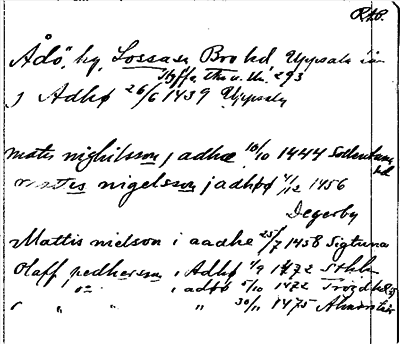 RAp.
Ådö, hg, Lossa sn Bro hd, Uppsala län
Styffe Un. u. th. 293
j Adhø 26/6 1439 Uppsala
matis nighilsson j adhø 10/10 1444 Sollentuna hd
mattis nigelsson j adhø 4/12 1456
Degerby
Mattis nielson i aadhe 25/7 1458 Sigtuna
Olaff pedhersson i Adhø 1/9 1472 Sthlm
" i adhø 5/11 1472 Trögds hd
" " " 30/11 1475